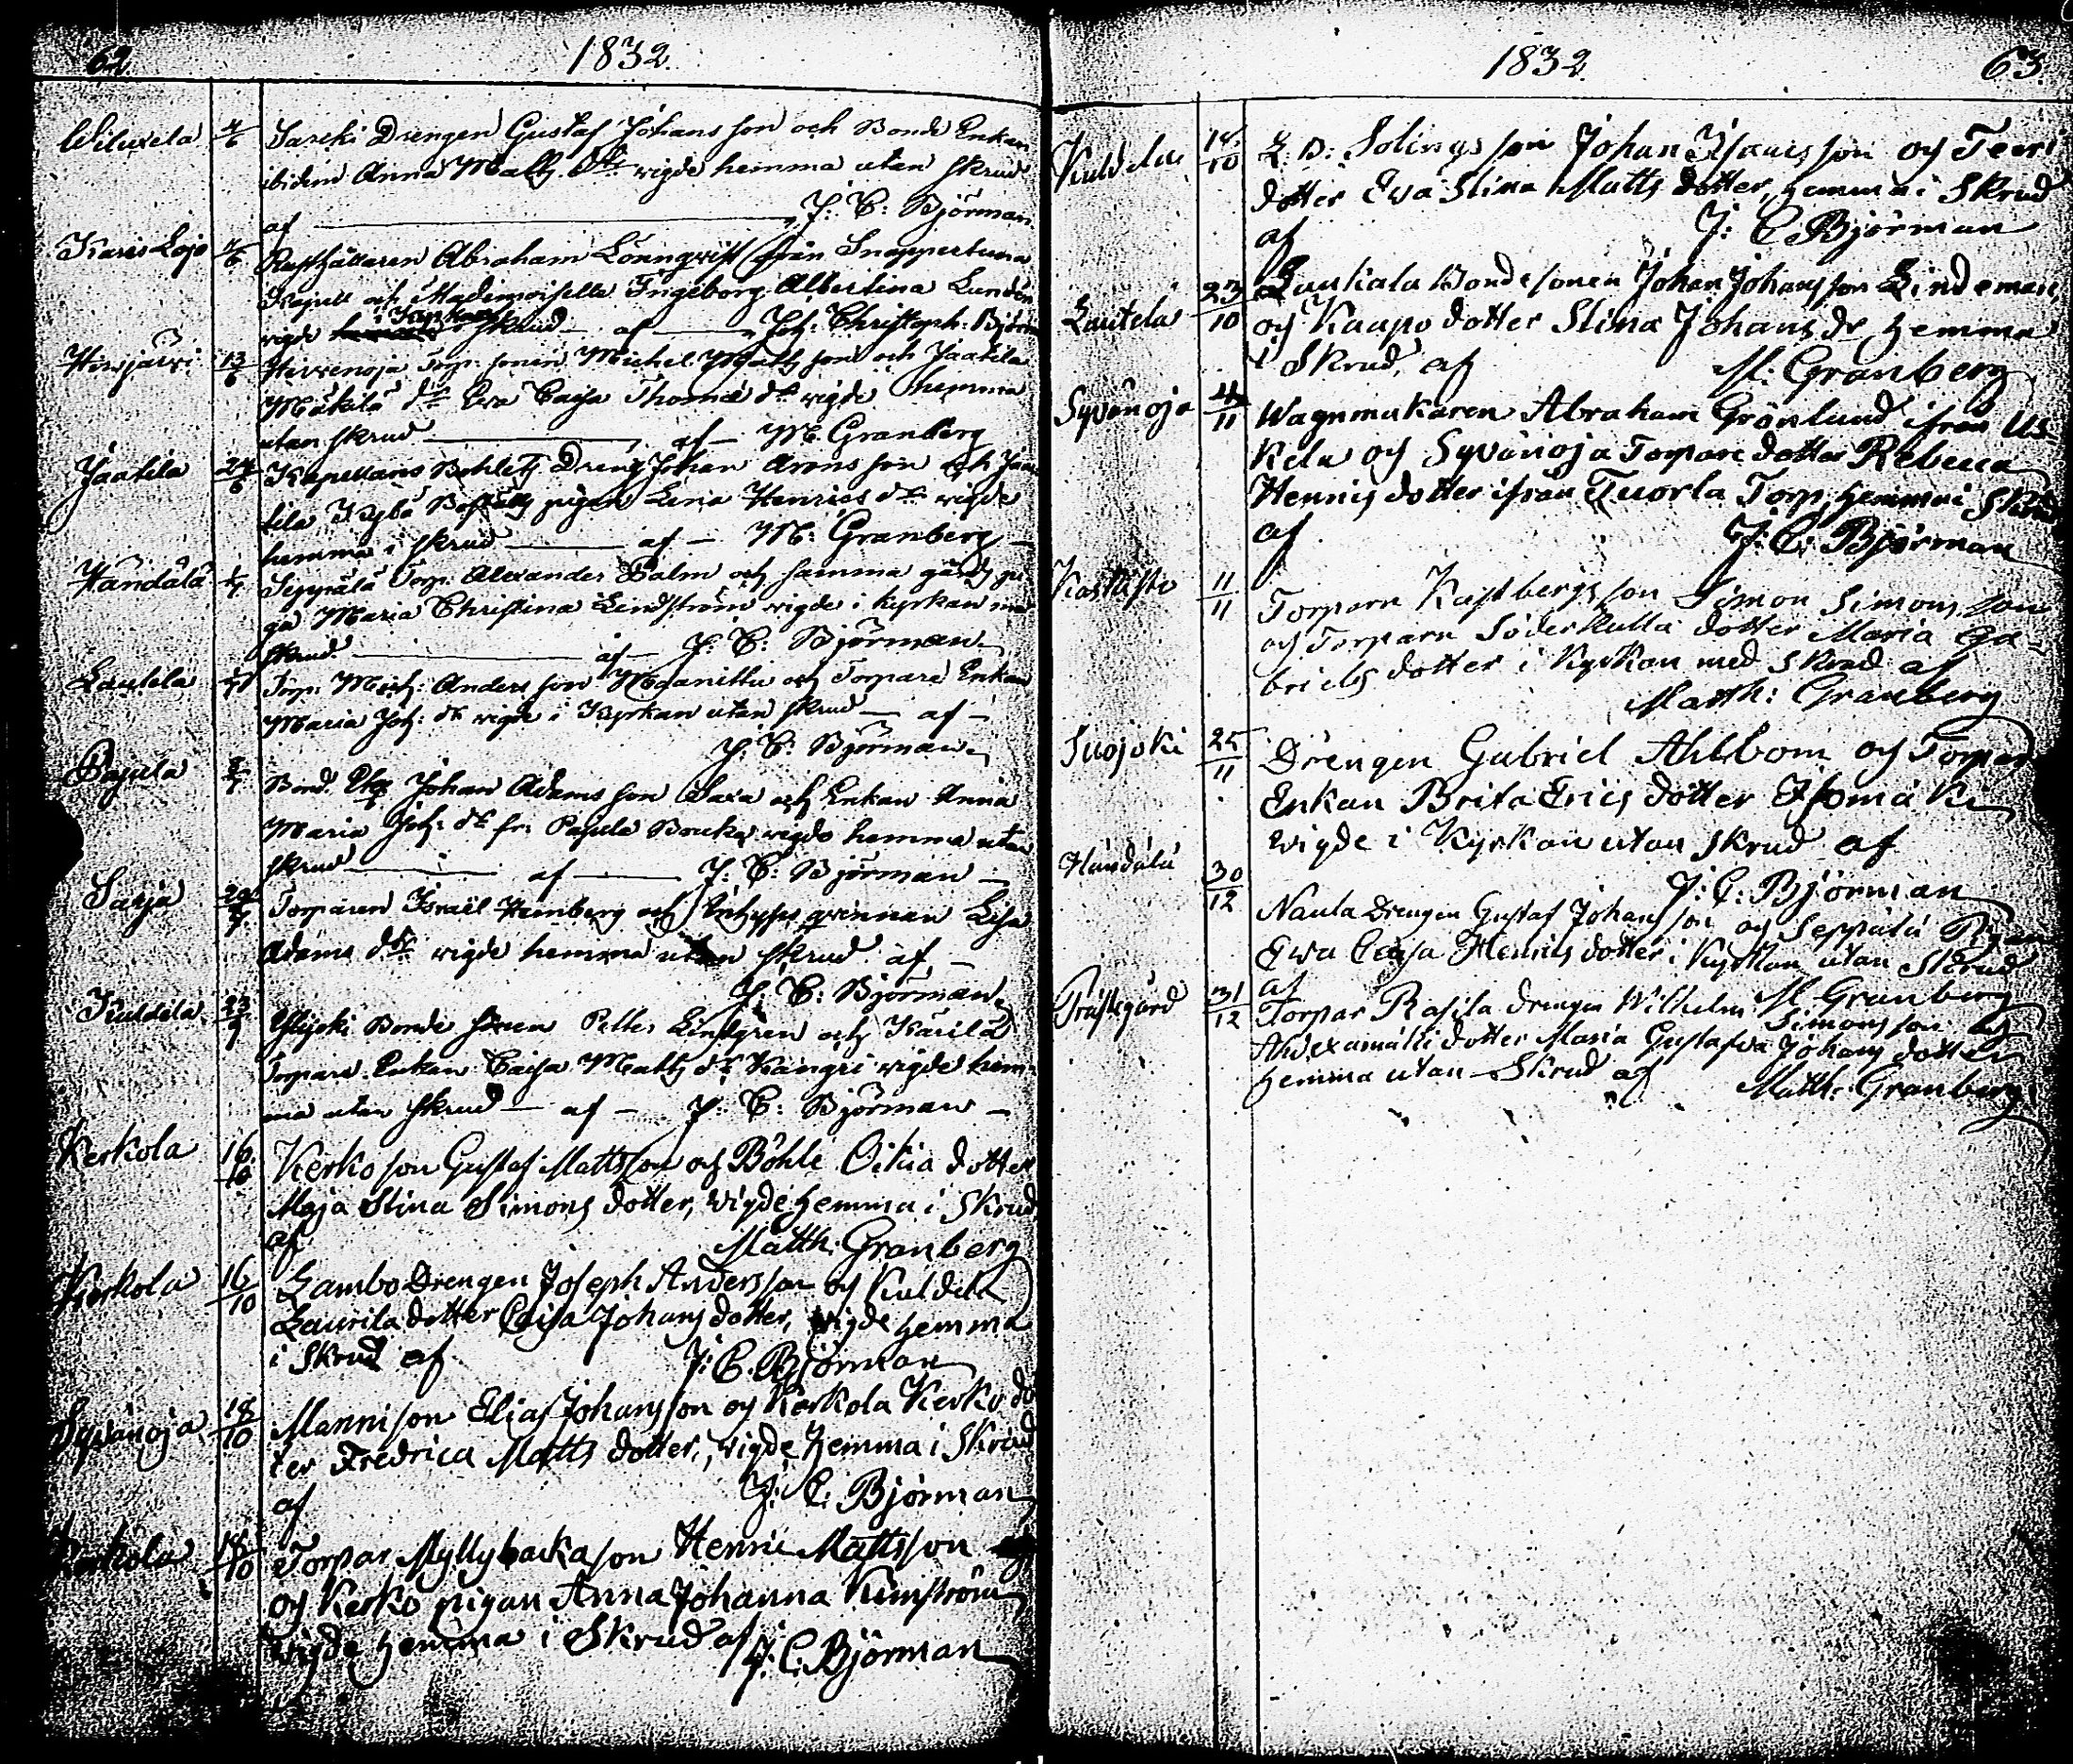 62.
1832.
Wiluxela 4/6 Sareki Drengen Gustaf Johans son och Bonde Enkan
ibidem Anna Matts dtr wigde hemma utan skrud
af J: C: Björman.
Karis Lojo 7/6 Rusthållaren Abraham Lönnqvist från Snappertuna
Kapell och Mademoiselle Ingeborg Albertina Lundén
wigde i skrud af Joh: Christoph: Björman
Hirsjärvi 13/6 Hirvenoja Torp: sonen Michel Matts son och Jaatila
Mäkilä dtr Eva Caisa Thomæ dtr wigde hemma
utan skrud af M. Granberg
Jaatila 24/6 Kapellans Bohlets Dreng Johan Arons son och Jaa-
tila pigan Lena Henrics dtr wigde
hemma i skrud af M: Granberg
Händälä Seppälä Torp: Alexander Palm och samma gårds pi-
ga Maria Christina Lindström wigde i kyrkan med
skrud af J: C: Björman
Lautela Torp: Mich: Anders son och Torpare Enkan
Maria Joh: dr wigde i Kyrkan utan skrud af
J: C: Björman
Pajula Bond. Johan Adams son Saxa och Enkan Anna
Maria Joh: dr fr: Pajula wigde hemma utan
skrud af J: C: Björman
Sarja 29/7 Torparen Israël Hemberg och qwinnan Lisa
Adams dtr wigde hemma utan skrud af
J: C: Björman
Kuldela 23/9 Ylijoki Bonde sonen Petter Lindgren och Karila
Torpare Enkan Caisa Matts dr Kangri wigde hem-
ma utan skrud af J: C: Björman
Kerkola 16/10 Kerko son Gustaf Mattsson och Böhle Oikia dotter
Maja Stina Simons dotter, wigde hemma i Skrud
af Matth: Granberg
Kerkola 16/10 Lambo Drengen Joseph Andersson och Kuldela
Laurila dotter Caisa Johans dotter, wigde hemma
i Skrud af J: C. Björman
Syvänoja 18/10 Manni son Elias Johansson och Kerkola Kerko dot
ter Fredrica Matts dotter, wigde hemma i Skrud
af J: C: Björman
Kerkola 18/10 Torpar Myllybacka son Henric Mattsson
och Kerko pigan Anna Johanna Kumström
wigde hemma i Skrud af J: C: Björman
1832.
63.
Kuldela 18/10 L: B: Solings son Johan Isaacs son och Teeri
dotter Ewa Stina Matts dotter, hemma i Skrud
af J: C. Björman
Lautela 23/10 Laukala Bondesonen Johan Johans son Lindeman,
och Kaapo dotter Stina Johans dr hemma
i Skrud, af M: Granberg
Syvänoja 4/11 Wagnmakaren Abraham Grönlund ifrån Us-
kela och Syvänoja Torpare dotter Rebecca
Henrics dotter ifrån Tuorla Torp, hemma i Skrud
af J: C: Björman
Koskisto 11/11 Torparn Kastbergs son Simon Simons son
och Torparn Söderkulla dotter Maria Ga-
briels dotter i Kyrkan med Skrud af
Matth: Granberg
Suojoki 25/11 Drengen Gabriel Ahlbom och Torpar
Enkan Brita Erics dotter Isomäki
wigde i Kyrkan utan skrud af
J: C: Björman
Händälä 30/12 Naula Drengen Gustaf Johans son och Seppälä Pigan
Ewa Caisa Henrics dotter i Kyrkan utan Skrud
af M Granberg
Prästgård 31/12 Torpar Rasila drengen Wilhelm Simons son och
dotter Maria Gustafva Johans dotter
hemma utan Skrud af Matth: Granberg